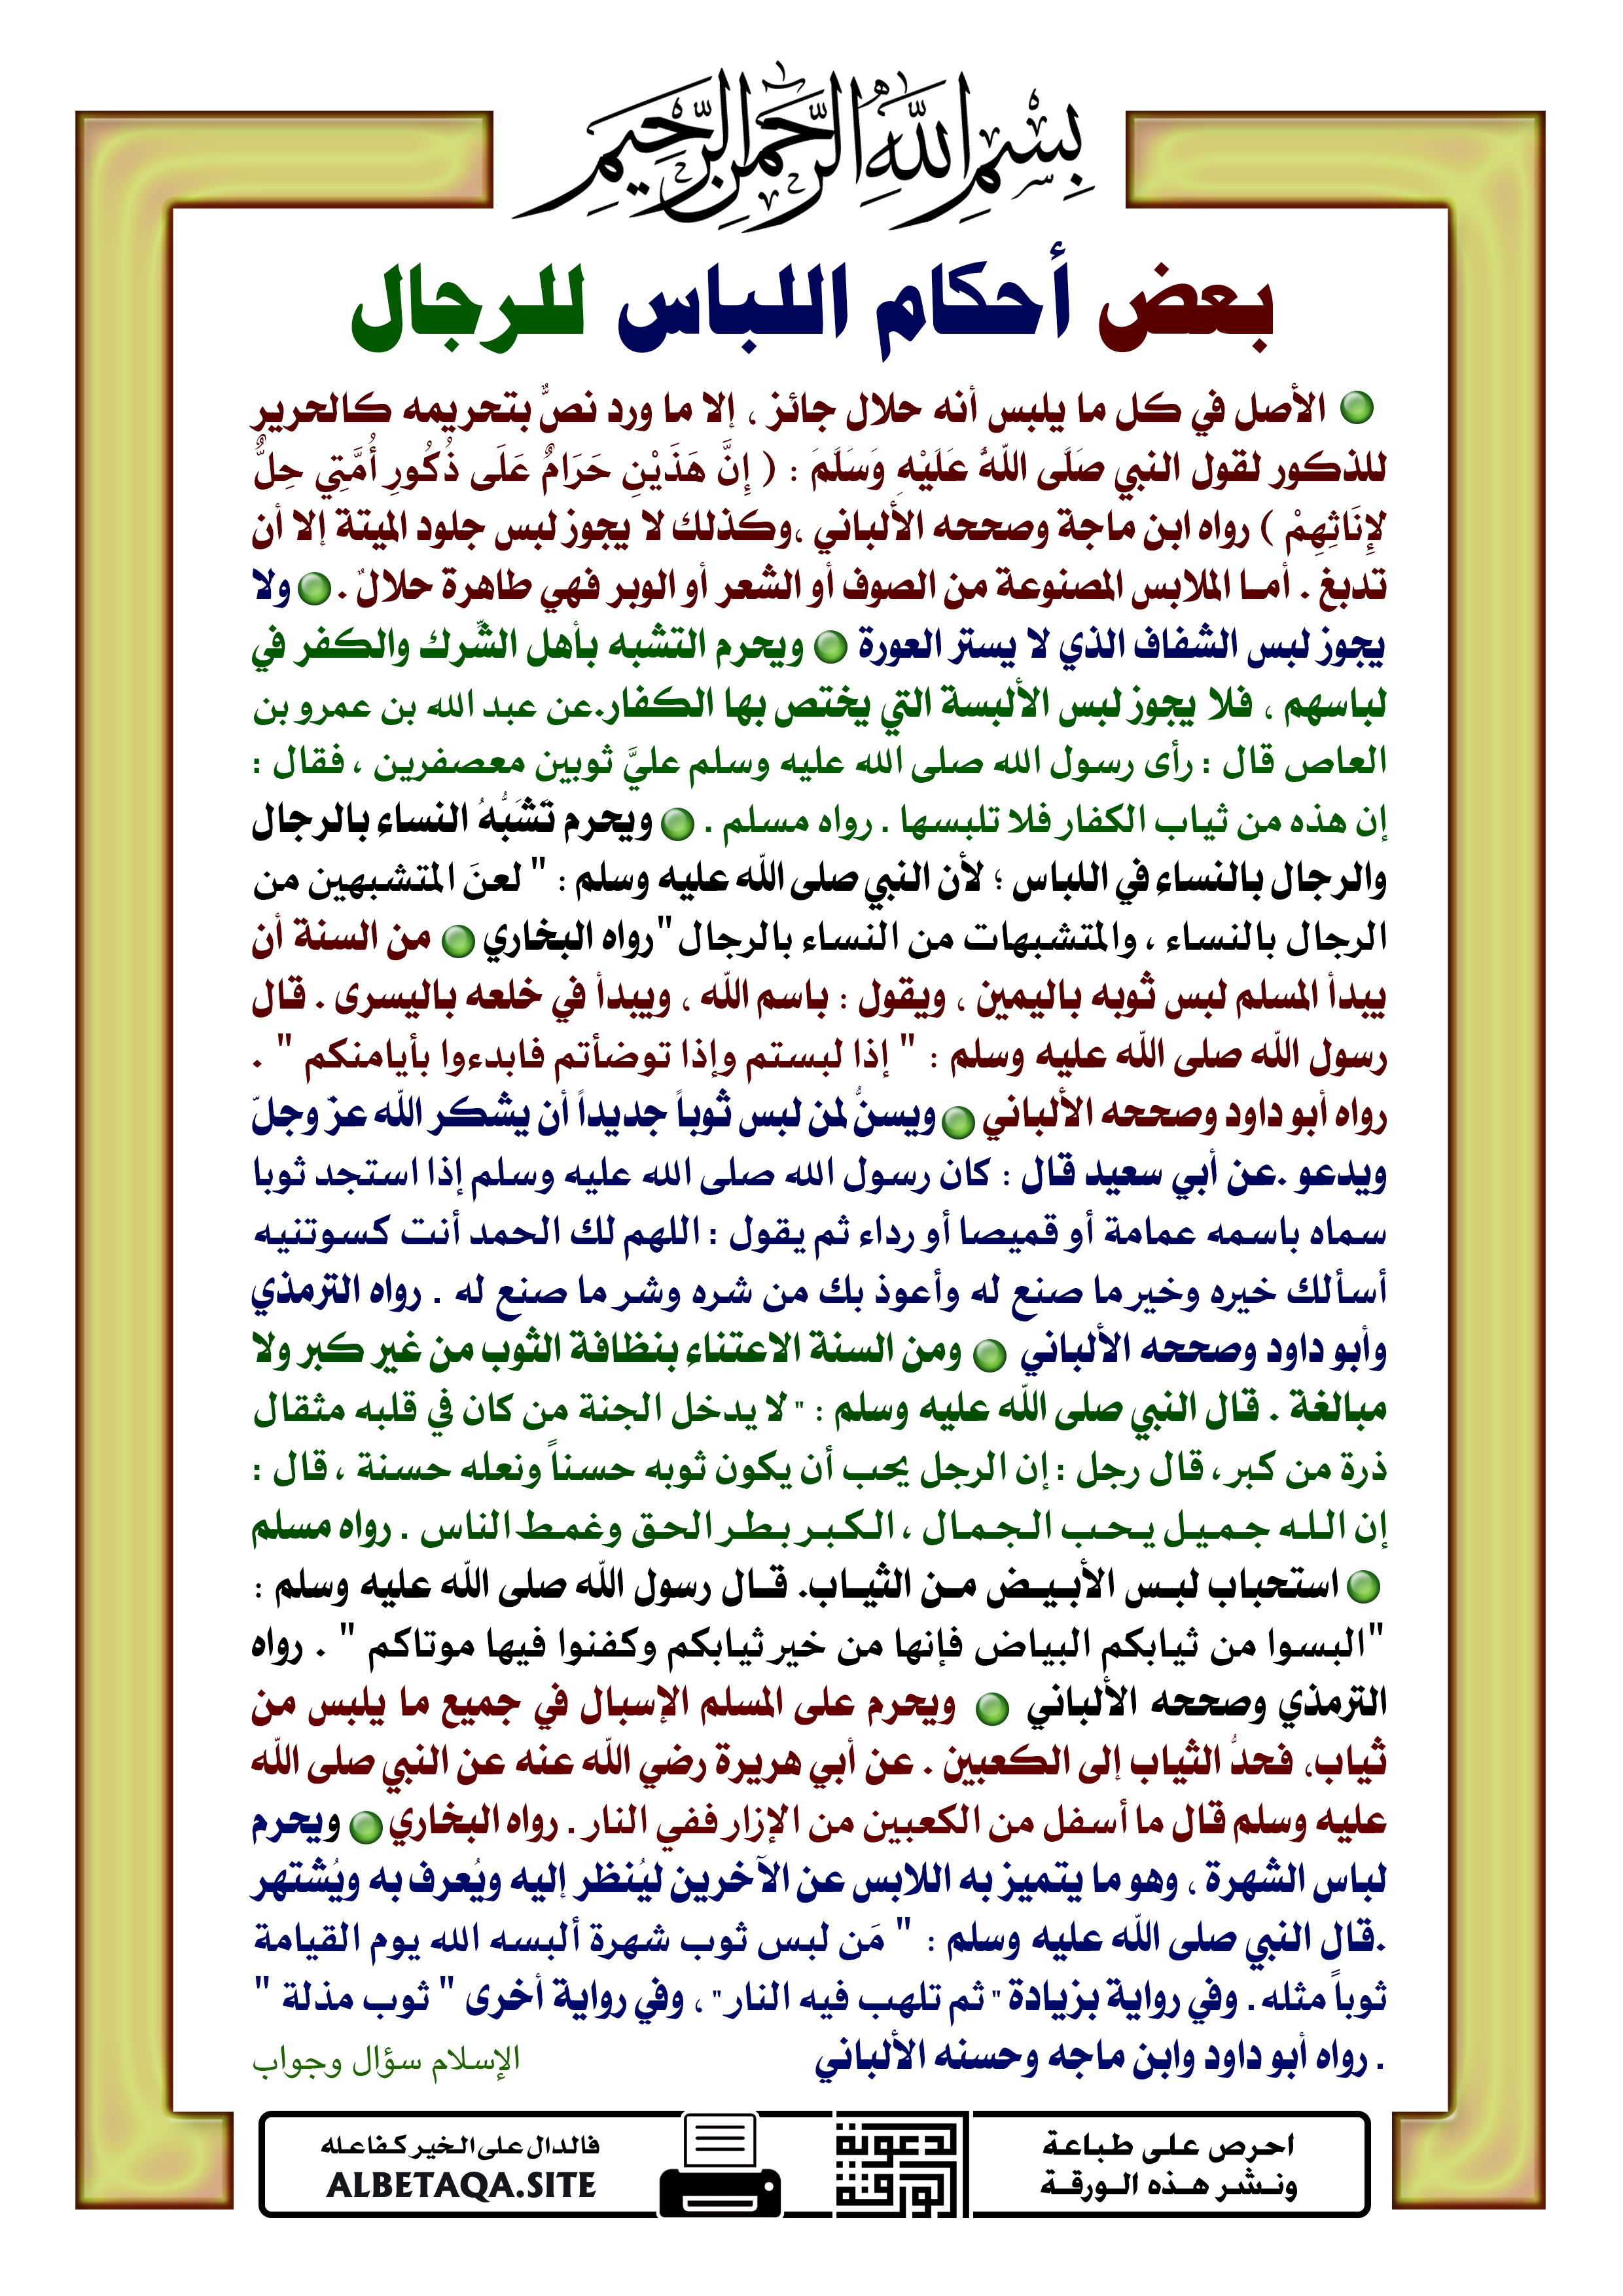 بِسْمِ اللَّهِ الرَّحْمَنِ الرَّحِيمِ
بعض أحكام اللباس للرجال
الأصل في كل ما يلبس أنه حلال جائز ، إلا ما ورد نصٌّ بتحريمه كالحرير
للذكور لقول النبي صَلَّى اللَّهُ عَلَيْهِ وَسَلَّمَ : ( إِنَّ هَذَيْنِ حَرَامٌ عَلَى ذُكُورِ أُمَّتِي حِلٌّ
لإِنَاثِهِمْ ) رواه ابن ماجة وصححه الألباني ،وكذلك لا يجوز لبس جلود الميتة إلا أن
تدبغ . أمـا الملابس المصنوعة من الصوف أو الشعر أو الوبر فهي طاهرة حلالٌ . ولا
يجوز لبس الشفاف الذي لا يستر العورة ويحرم التشبه بأهل الشِّرك والكفر في
لباسهم ، فلا يجوز لبس الألبسة التي يختص بها الكفار.عن عبد الله بن عمرو بن
العاص قال : رأى رسول الله صلى الله عليه وسلم عليَّ ثوبين معصفرين ، فقال :
إن هذه من ثياب الكفار فلا تلبسها . رواه مسلم . ويحرم تَشَبُّهُ النساء بالرجال
والرجال بالنساء في اللباس ؛ لأن النبي صلى الله عليه وسلم : " لعنَ المتشبهين من
الرجال بالنساء ، والمتشبهات من النساء بالرجال "رواه البخاري من السنة أن
يبدأ المسلم لبس ثوبه باليمين ، ويقول : باسم الله ، ويبدأ في خلعه باليسرى . قال
رسول الله صلى الله عليه وسلم : " إذا لبستم وإذا توضأتم فابدءوا بأيامنكم " .
رواه أبو داود وصححه الألباني ويسنُّ لمن لبس ثوباً جديداً أن يشكر الله عزّ وجلّ
ويدعو .عن أبي سعيد قال : كان رسول الله صلى الله عليه وسلم إذا استجد ثوبا
سماه باسمه عمامة أو قميصا أو رداء ثم يقول : اللهم لك الحمد أنت كسوتنيه
أسألك خيره وخير ما صنع له وأعوذ بك من شره وشر ما صنع له . رواه الترمذي
وأبو داود وصححه الألباني ومن السنة الاعتناء بنظافة الثوب من غير كبر ولا
مبالغة . قال النبي صلى الله عليه وسلم : " لا يدخل الجنة من كان في قلبه مثقال
ذرة من كبر ، قال رجل : إن الرجل يحب أن يكون ثوبه حسناً ونعله حسنة ، قال :
إن الله جميل يحب الجمال ، الكبر بطر الحق وغمط الناس . رواه مسلم
استحباب لبس الأبيض من الثياب. قال رسول الله صلى الله عليه وسلم :
"البسوا من ثيابكم البياض فإنها من خير ثيابكم وكفنوا فيها موتاكم " . رواه
الترمذي وصححه الألباني ويحرم على المسلم الإسبال في جميع ما يلبس من
ثياب، فحدُّ الثياب إلى الكعبين . عن أبي هريرة رضي الله عنه عن النبي صلى الله
عليه وسلم قال ما أسفل من الكعبين من الإزار ففي النار . رواه البخاري ويحرم
لباس الشهرة ، وهو ما يتميز به اللابس عن الآخرين ليُنظر إليه ويُعرف به ويُشتهر
.قال النبي صلى الله عليه وسلم : " مَن لبس ثوب شهرة ألبسه الله يوم القيامة
ثوباً مثله . وفي رواية بزيادة " ثم تلهب فيه النار " ، وفي رواية أخرى " ثوب مذلة "
. رواه أبو داود وابن ماجه وحسنه الألباني
الإسلام سؤال وجواب
احرص على طباعة
ونشر هذه الورقة
الورقة
الدعوية
فالدال على الخير كفاعله
ALBETAQA.SITE